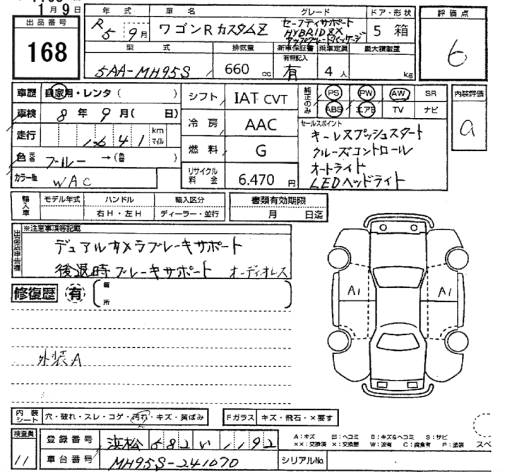 月9日
出品番号
168
年式
R5 9月
車名
ワゴンRカスタムZ
グレード
セーフティサポート
HYBRID ZX
ドア・形状
5 箱
評価点
6
型式
5AA-MH95S
排気量
660 cc
新車保証書
有
乗車定員
4 人
最大積載量
kg
車歴 自家用・レンタ ( )
車検 8年 9月 ( 日)
走行 1641 km マイル
色 ブルー → (
カラー№ WAC
シフト IAT CVT
冷房 AAC
燃料 G
リサイクル料金 6.470 円
純正のみ
PS PW AW SR
ABS エアB TV ナビ
内装評価
a
セールスポイント
キーレスプッシュスタート
クルーズコントロール
オートライト
LEDヘッドライト
輸入車
モデル年式 ハンドル 輸入区分
右H・左H ディーラー・並行
書類有効期限
月 日迄
※注意事項等記載
デュアルカメラブレーキサポート
後退時ブレーキサポート オーディオレス
修復歴 有
箇所
外装A
A1 A1
内装シート 穴・破れ・スレ・コゲ・汚れ・キズ・黄ばみ
Fガラス キズ・飛石・×要す
検査員
11
登録番号 浜松 582 い 1192
車台番号 MH95S-241070
シリアルNo